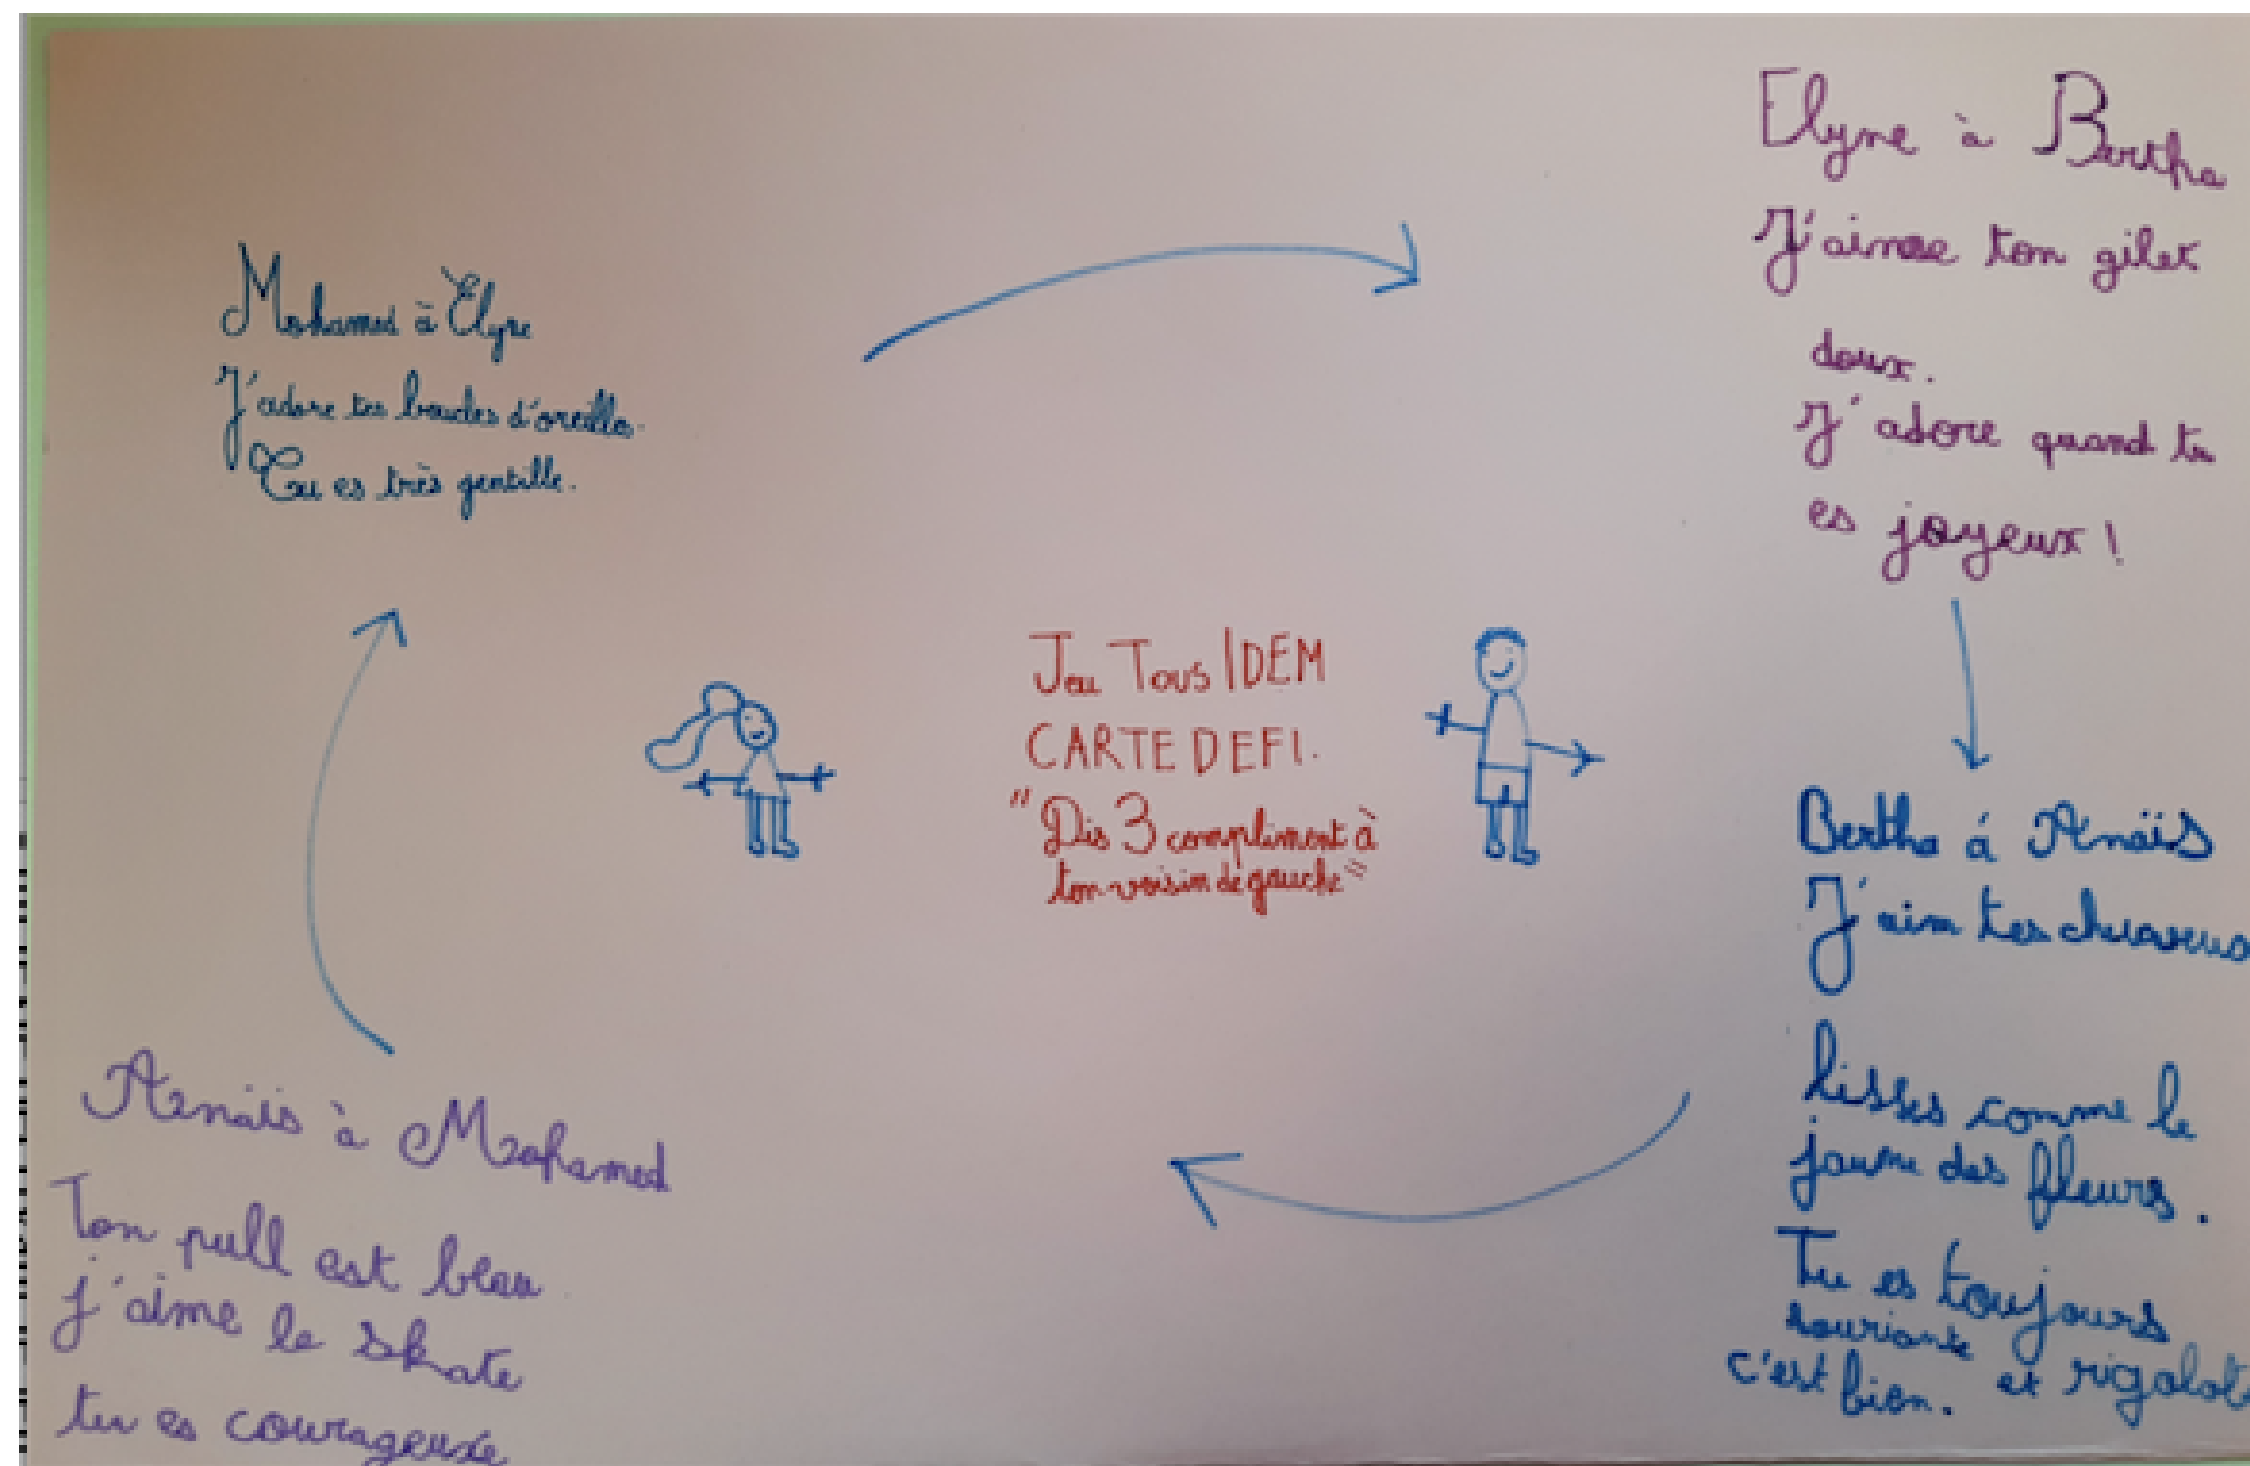 Mohamed à Élyne
J'adore tes boucles d'oreilles.
Tu es très gentille.
Elyne à Bertha
J'aime ton gilet
doux.
J'adore quand tu
es joyeux !
Jeu Tous IDEM
CARTE DEFI.
"Dis 3 compliment à
ton voisin de gauche"
Bertha á Anaïs
J'aim tes
lisses comme le
jaune des fleurs.
Tu es toujours
souriante et rigolot
c'est bien.
Anaïs à Mohamed
Ton pull est beau.
j'aime le skate
tu es courageuse